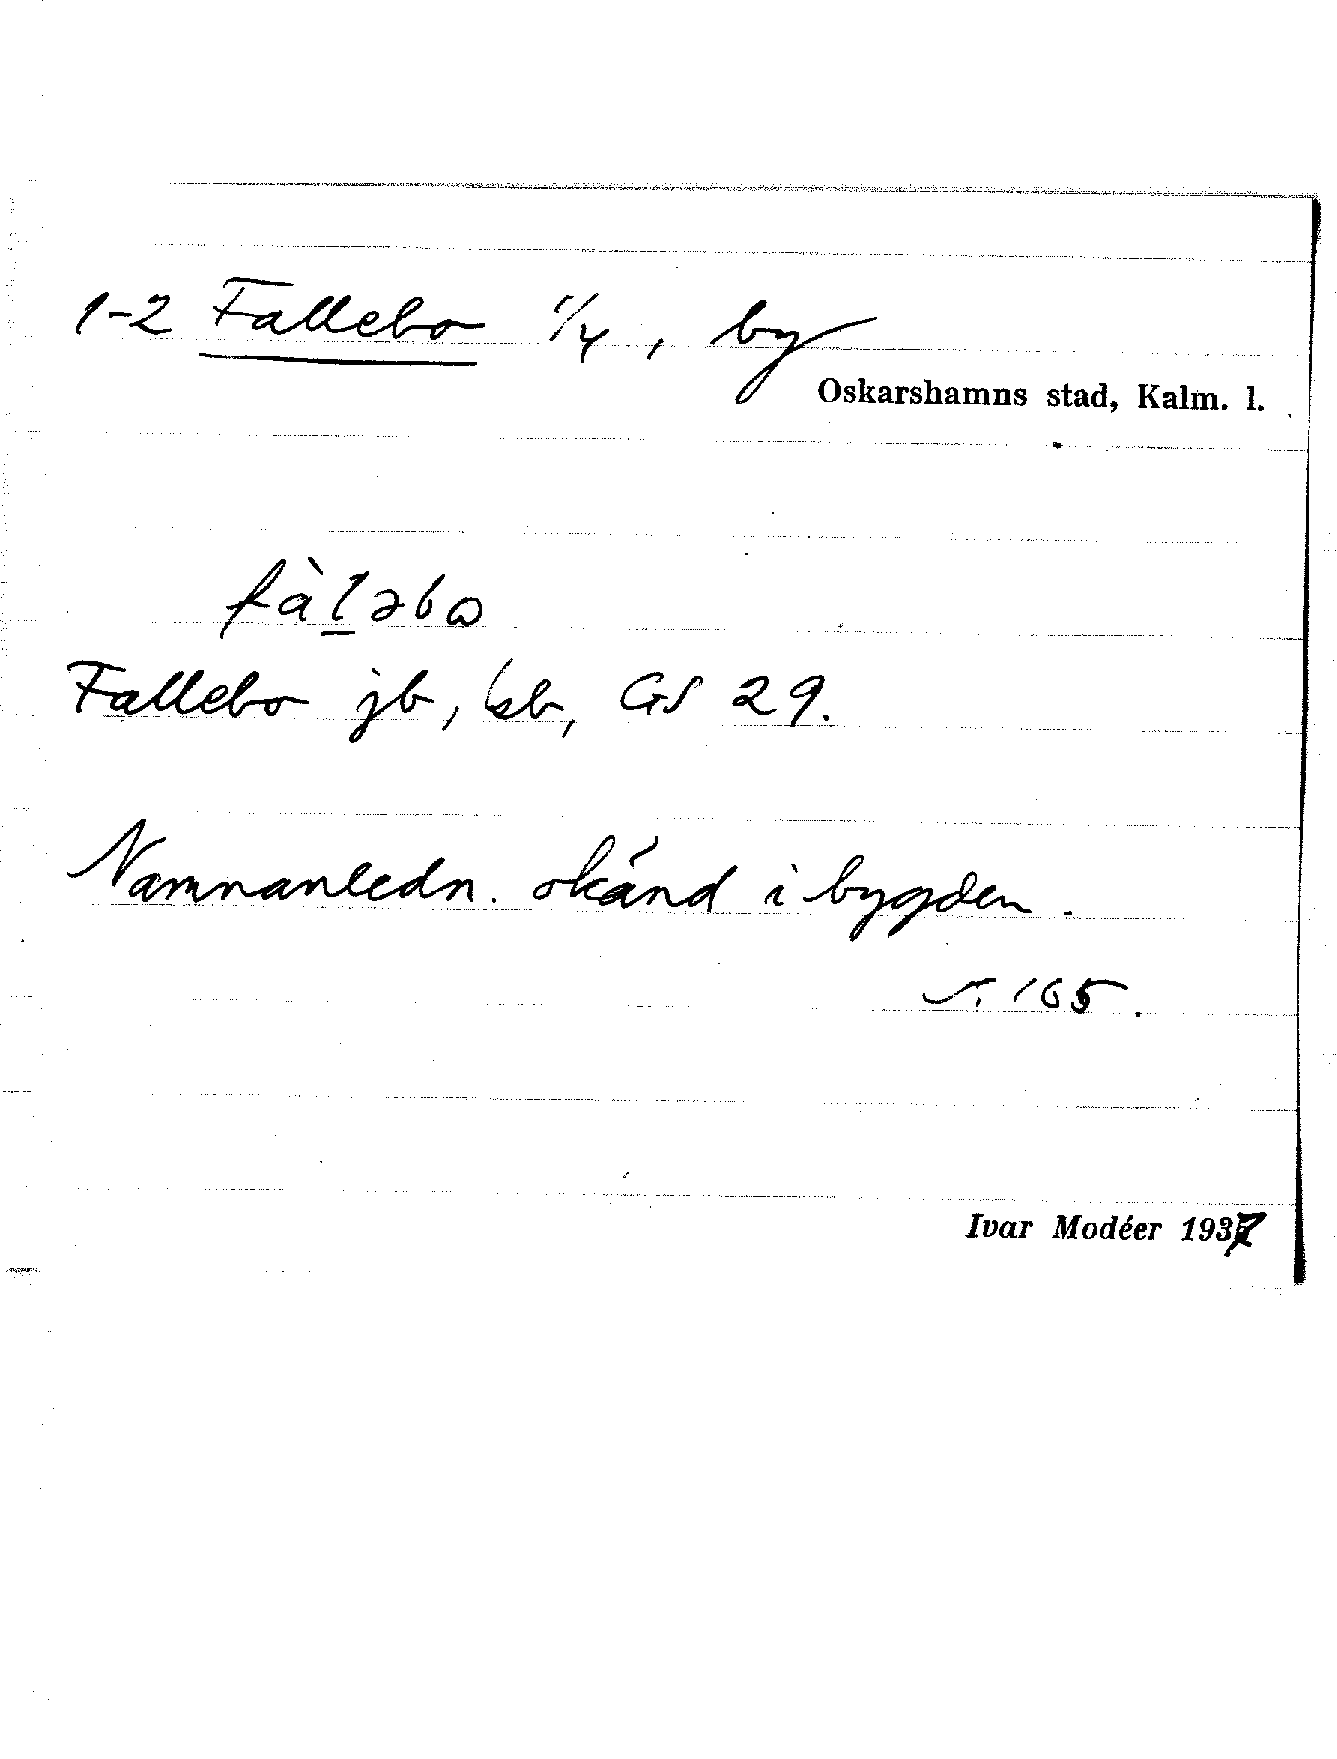 1-2 Fallebo 1/4, by
Oskarshamns stad, Kalm. l.
fàl̲əbɷ
Fallebo jb, kb, GS 29.
Namnanledn. okänd i bygden.
s. 165.
Ivar Modéer 1937